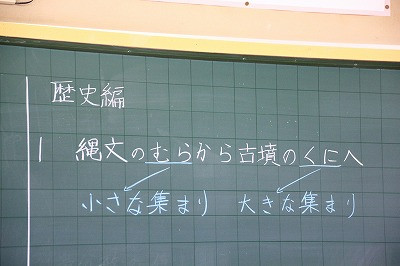 歴史編
1 縄文のむらから古墳のくにへ
小さな集まり 大きな集まり